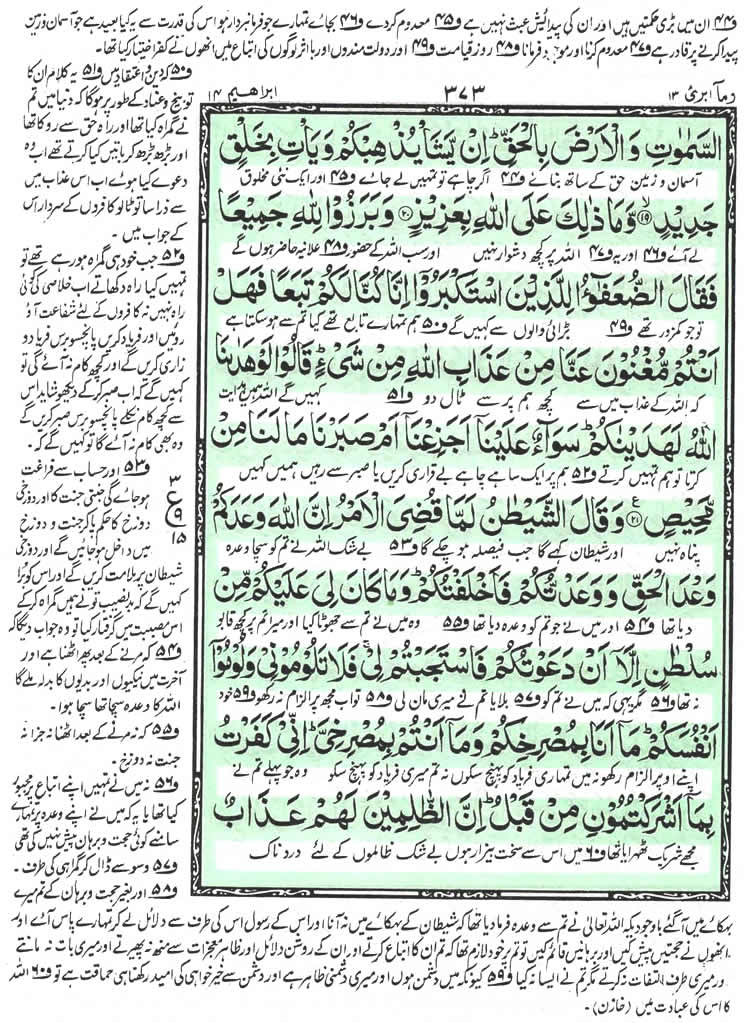 ف۴۴ ان میں بڑی حکمتیں ہیں اور ان کی پیدائش عبث نہیں ہے ف۴۵ معدوم کردے ف۴۶ بجائے تمہارے جو فرمانبردار ہو اس کی قدرت سے یہ کیا بعید ہے جو آسمان و زمین
پیدا کرنے پر قادر ہے ف۴۷ معدوم کرنا اور موجود فرمانا ف۴۸ روز قیامت ف۴۹ اور دولت مندوں اور با اثر لوگوں کی اتباع میں انھوں نے کفر اختیار کیا تھا۔
ومآ ابرئ ۱۳
۳۷۳
ابراھیم ۱۴
السَّمٰوٰتِ وَالْاَرْضَ بِالْحَقِّ ؕ اِنْ يَّشَاْ يُذْهِبْكُمْ وَيَاْتِ بِخَلْقٍ
آسمان و زمین حق کے ساتھ بنائے ف۴۴ اگر چاہے تو تمہیں لے جائے ف۴۵ اور ایک نئی مخلوق
جَدِيْدٍ ۙ﴿۱۹﴾ وَّمَا ذٰلِكَ عَلَى اللّٰهِ بِعَزِيْزٍ ﴿۲۰﴾ وَبَرَزُوْا لِلّٰهِ جَمِيْعًا
لے آئے ف۴۶ اور یہ ف۴۷ اللہ پر کچھ دشوار نہیں اور سب اللہ کے حضور ف۴۸ علانیہ حاضر ہوں گے
فَقَالَ الضُّعَفٰٓؤُا لِلَّذِيْنَ اسْتَكْبَرُوْۤا اِنَّا كُنَّا لَكُمْ تَبَعًا فَهَلْ
تو جو کمزور تھے ف۴۹ بڑائی والوں سے کہیں گے ف۵۰ ہم تمہارے تابع تھے کیا تم سے ہو سکتا ہے
اَنْتُمْ مُّغْنُوْنَ عَنَّا مِنْ عَذَابِ اللّٰهِ مِنْ شَيْءٍ ؕ قَالُوْا لَوْ هَدٰىنَا
کہ اللہ کے عذاب میں سے کچھ ہم پر سے ٹال دو ف۵۱ کہیں گے اللہ ہمیں ہدایت
اللّٰهُ لَهَدَيْنٰكُمْ ؕ سَوَآءٌ عَلَيْنَاۤ اَجَزِعْنَاۤ اَمْ صَبَرْنَا مَا لَنَا مِنْ
کرتا تو ہم تمہیں کرتے ف۵۲ ہم پر ایک سا ہے چاہے بے قراری کریں یا صبر سے رہیں ہمیں کہیں
مَّحِيْصٍ ﴿۲۱﴾ وَقَالَ الشَّيْطٰنُ لَمَّا قُضِيَ الْاَمْرُ اِنَّ اللّٰهَ وَعَدَكُمْ
پناہ نہیں اور شیطان کہے گا جب فیصلہ ہو چکے گا ف۵۳ بے شک اللہ نے تم کو سچا وعدہ
وَعْدَ الْحَقِّ وَوَعَدْتُّكُمْ فَاَخْلَفْتُكُمْ ؕ وَمَا كَانَ لِيَ عَلَيْكُمْ مِّنْ
دیا تھا ف۵۴ اور میں نے جو تم کو وعدہ دیا تھا ف۵۵ وہ میں نے تم سے جھوٹا کیا اور میرا تم پر کچھ قابو
سُلْطٰنٍ اِلَّاۤ اَنْ دَعَوْتُكُمْ فَاسْتَجَبْتُمْ لِيْ ۚ فَلَا تَلُوْمُوْنِيْ وَلُوْمُوْۤا
نہ تھا ف۵۶ مگر یہی کہ میں نے تم کو ف۵۷ بلایا تم نے میری مان لی ف۵۸ تو اب مجھ پر الزام نہ رکھو ف۵۹ خود
اَنْفُسَكُمْ ؕ مَاۤ اَنَا بِمُصْرِخِكُمْ وَمَاۤ اَنْتُمْ بِمُصْرِخِيَّ ؕ اِنِّيْ كَفَرْتُ
اپنے اوپر الزام رکھو نہ میں تمہاری فریاد کو پہنچ سکوں نہ تم میری فریاد کو پہنچ سکو وہ جو پہلے تم نے
بِمَاۤ اَشْرَكْتُمُوْنِ مِنْ قَبْلُ ؕ اِنَّ الظّٰلِمِيْنَ لَهُمْ عَذَابٌ
مجھے شریک ٹھہرایا تھا ف۶۰ میں اس سے سخت بیزار ہوں بے شک ظالموں کے لئے دردناک
ف۵۰ کہ دین و اعتقاد میں ف۵۱ یہ کلام ان کا
توبیخ و عناد کے طور پر ہوگا کہ دنیا میں تم
نے گمراہ کیا تھا اور راہ حق سے روکا تھا
اور بڑھ بڑھ کر باتیں کیا کرتے تھے اب وہ
دعوے کیا ہوئے اب اس عذاب میں
سے ذرا سا تو ٹالو کافروں کے سردار اس
کے جواب میں۔
ف۵۲ جب خود ہی گمراہ ہو رہے تھے تو
تمہیں کیا راہ دکھاتے اب خلاصی کی کوئی
راہ نہیں نہ کافروں کے لئے شفاعت آؤ
روئیں اور فریاد کریں پانچسو برس فریاد و
زاری کریں گے اور کچھ کام نہ آئے گی تو
کہیں گے کہ اب صبر کرکے دیکھو شاید اس
سے کچھ کام نکلے پانچسو برس صبر کریں گے
وہ بھی کام نہ آئے گا تو کہیں گے کہ۔
ف۵۳ اور حساب سے فراغت
ہو جائے گی جنتی جنت کا اور دوزخی
دوزخ کا حکم پا کر جنت و دوزخ
میں داخل ہو جائیں گے اور دوزخی
شیطان پر ملامت کریں گے اور اس کو برا
کہیں گے کہ بدنصیب تو نے ہمیں گمراہ کرکے
اس مصیبت میں گرفتار کیا تو وہ جواب دیگا کہ
ف۵۴ کہ مرنے کے بعد پھر اٹھنا ہے اور
آخرت میں نیکیوں اور بدیوں کا بدلہ ملے گا
اللہ کا وعدہ سچا تھا سچا ہوا۔
ف۵۵ کہ نہ مرنے کے بعد اٹھنا نہ جزا نہ
جنت نہ دوزخ۔
ف۵۶ نہ میں نے تمہیں اپنے اتباع پر مجبور
کیا تھا یا یہ کہ میں نے اپنے وعدہ پر تمہارے
سامنے کوئی حجت و برہان پیش نہیں کی تھی
ف۵۷ وسوسے ڈال کر گمراہی کی طرف۔
ف۵۸ اور بغیر حجت و برہان کے تم میرے
۳
ع
۹
۱۵
بہکائے میں آ گئے باوجودیکہ اللہ تعالیٰ نے تم سے وعدہ فرما دیا تھا کہ شیطان کے بہکائے میں نہ آنا اور اس کے رسول اس کی طرف سے دلائل لے کر تمہارے پاس آئے اور
انھوں نے حجتیں پیش کیں اور برہانیں قائم کیں تو تم پر خود لازم تھا کہ تم ان کا اتباع کرتے اور ان کے روشن دلائل اور ظاہر معجزات سے منھ نہ پھیرتے اور میری بات نہ مانتے
اور میری طرف التفات نہ کرتے مگر تم نے ایسا نہ کیا ف۵۹ کیونکہ میں دشمن ہوں اور میری دشمنی ظاہر ہے اور دشمن سے خیر خواہی کی امید رکھنا ہی حماقت ہے تو ف۶۰ اللہ
کا اس کی عبادت میں (خازن)۔